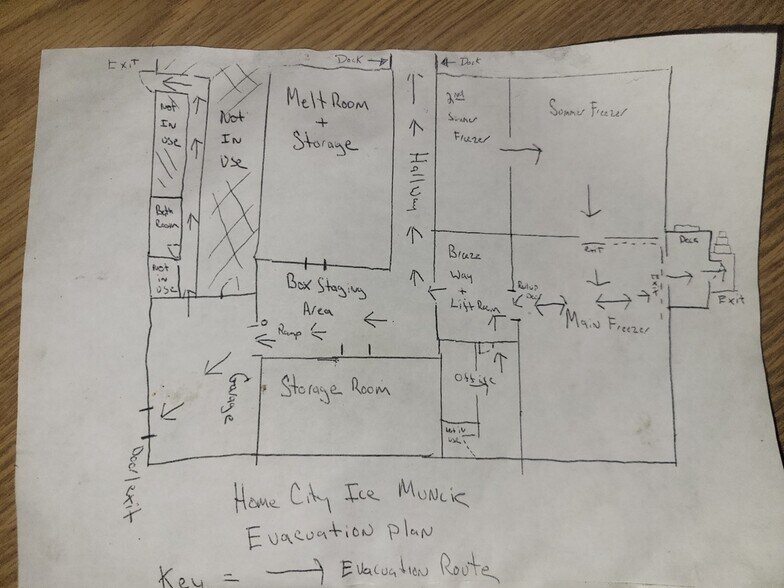 Exit
Dock
Dock
Melt Room
+
Storage
Not
In
use
Not
In
use
Hallway
2nd
Summer
Freezer
Summer Freezer
Bath
Room
Not
in
use
Box Staging
Area
Ramp
Breeze
Way
+
Lift Room
Exit
Exit
Dock
Exit
Main Freezer
Garage
Storage Room
Office
Not in
use
Door/exit
Home City Ice Muncie
Evacuation plan
Key = → Evacuation Route